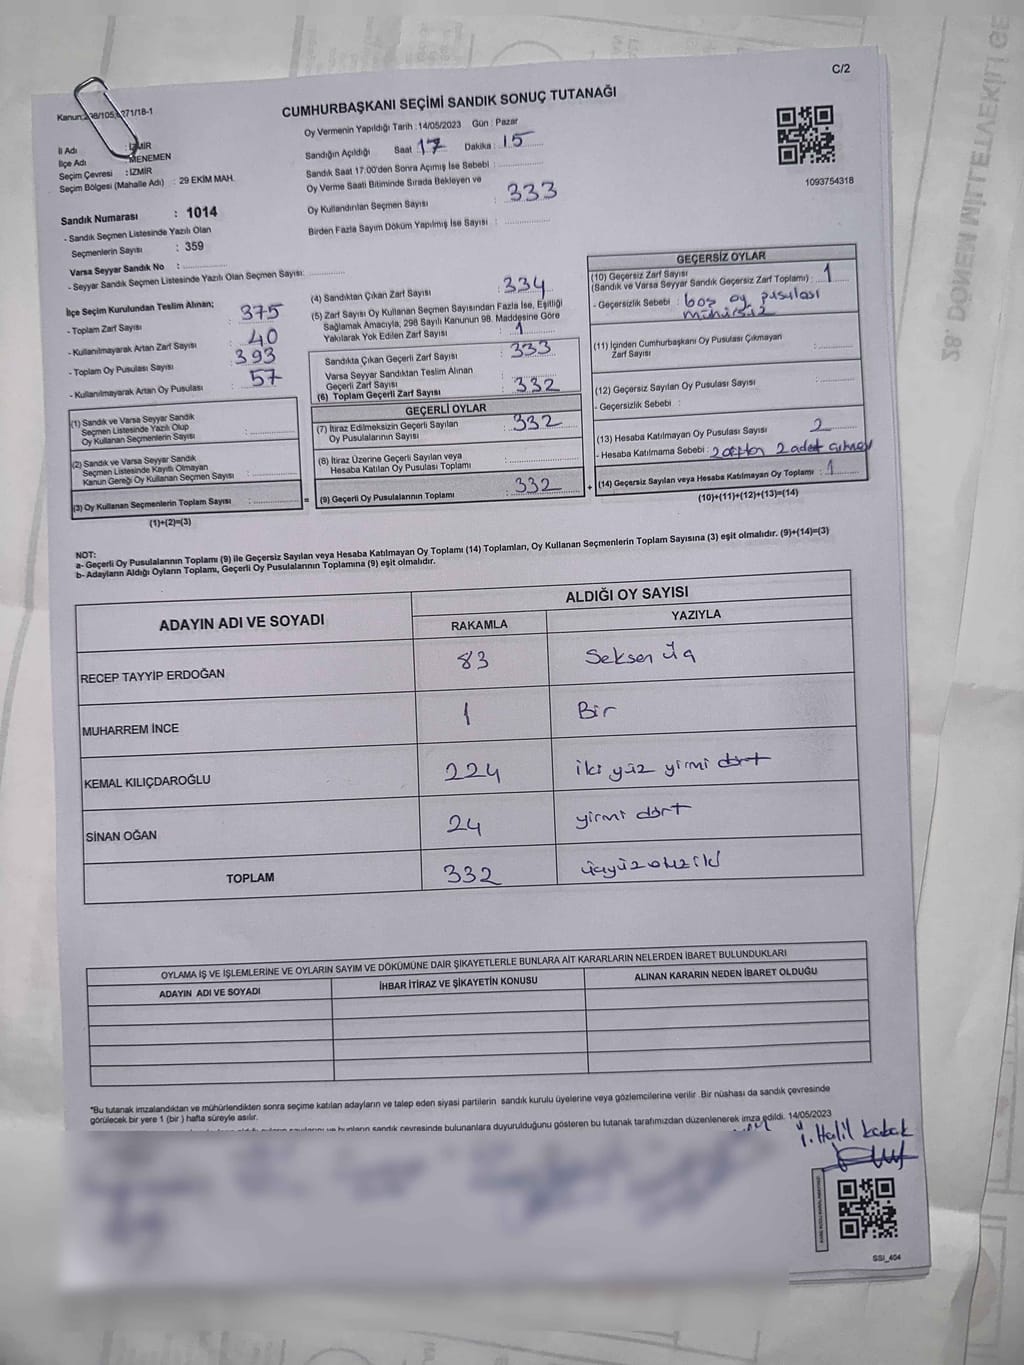 C/2
CUMHURBAŞKANI SEÇİMİ SANDIK SONUÇ TUTANAĞI
İl Adı : İZMİR
İlçe Adı : MENEMEN
Seçim Çevresi : İZMİR
Seçim Bölgesi (Mahalle Adı) : 29 EKİM MAH.
Sandık Numarası : 1014
- Sandık Seçmen Listesinde Yazılı Olan
Seçmenlerin Sayısı : 359
Varsa Seyyar Sandık No :
- Seyyar Sandık Seçmen Listesinde Yazılı Olan Seçmen Sayısı:
Oy Vermenin Yapıldığı Tarih : 14/05/2023 Gün : Pazar
Sandığın Açıldığı Saat 17 Dakika : 15
Sandık Saat 17:00'den Sonra Açımış İse Sebebi :
Oy Verme Saati Bitiminde Sırada Bekleyen ve
Oy Kullandırılan Seçmen Sayısı : 333
Birden Fazla Sayım Döküm Yapılmış İse Sayısı :
1093754318
İlçe Seçim Kurulundan Teslim Alınan;
- Toplam Zarf Sayısı : 375
- Kullanılmayarak Artan Zarf Sayısı : 40
- Toplam Oy Pusulası Sayısı : 393
- Kullanılmayarak Artan Oy Pusulası : 57
(1) Sandık ve Varsa Seyyar Sandık
Seçmen Listesinde Yazılı Olup
Oy Kullanan Seçmenlerin Sayısı :
(2) Sandık ve Varsa Seyyar Sandık
Seçmen Listesinde Kayıtlı Olmayan
Kanun Gereği Oy Kullanan Seçmen Sayısı :
(3) Oy Kullanan Seçmenlerin Toplam Sayısı : =
(1)+(2)=(3)
(4) Sandıktan Çıkan Zarf Sayısı : 334
(5) Zarf Sayısı Oy Kullanan Seçmen Sayısından Fazla İse, Eşitliği
Sağlamak Amacıyla, 298 Sayılı Kanunun 98. Maddesine Göre
Yakılarak Yok Edilen Zarf Sayısı : 1
Sandıkta Çıkan Geçerli Zarf Sayısı : 333
Varsa Seyyar Sandıktan Teslim Alınan
Geçerli Zarf Sayısı :
(6) Toplam Geçerli Zarf Sayısı : 332
GEÇERLİ OYLAR
(7) İtiraz Edilmeksizin Geçerli Sayılan
Oy Pusulalarının Sayısı : 332
(8) İtiraz Üzerine Geçerli Sayılan veya
Hesaba Katılan Oy Pusulası Toplamı :
(9) Geçerli Oy Pusulalarının Toplamı : 332 +
GEÇERSİZ OYLAR
(10) Geçersiz Zarf Sayısı
(Sandık ve Varsa Seyyar Sandık Geçersiz Zarf Toplamı) : 1
- Geçersizlik Sebebi : boş oy pusulası
mühürsüz
(11) İçinden Cumhurbaşkanı Oy Pusulası Çıkmayan
Zarf Sayısı :
(12) Geçersiz Sayılan Oy Pusulası Sayısı :
- Geçersizlik Sebebi :
(13) Hesaba Katılmayan Oy Pusulası Sayısı : 2
- Hesaba Katılmama Sebebi : 2 adet
(14) Geçersiz Sayılan veya Hesaba Katılmayan Oy Toplamı : 1
(10)+(11)+(12)+(13)=(14)
NOT:
a- Geçerli Oy Pusulalarının Toplamı (9) ile Geçersiz Sayılan veya Hesaba Katılmayan Oy Toplamı (14) Toplamları, Oy Kullanan Seçmenlerin Toplam Sayısına (3) eşit olmalıdır. (9)+(14)=(3)
b- Adayların Aldığı Oyların Toplamı, Geçerli Oy Pusulalarının Toplamına (9) eşit olmalıdır.
ADAYIN ADI VE SOYADI
ALDIĞI OY SAYISI
RAKAMLA YAZIYLA
RECEP TAYYİP ERDOĞAN 83 Seksen üç
MUHARREM İNCE 1 Bir
KEMAL KILIÇDAROĞLU 224 iki yüz yirmi dört
SİNAN OĞAN 24 yirmi dört
TOPLAM 332 üçyüzotuziki
OYLAMA İŞ VE İŞLEMLERİNE VE OYLARIN SAYIM VE DÖKÜMÜNE DAİR ŞİKAYETLERLE BUNLARA AİT KARARLARIN NELERDEN İBARET BULUNDUKLARI
ADAYIN ADI VE SOYADI İHBAR İTİRAZ VE ŞİKAYETİN KONUSU ALINAN KARARIN NEDEN İBARET OLDUĞU
"Bu tutanak imzalandıktan ve mühürlendikten sonra seçime katılan adayların ve talep eden siyasi partilerin sandık kurulu üyelerine veya gözlemcilerine verilir. Bir nüshası da sandık çevresinde
görülecek bir yere 1 (bir) hafta süreyle asılır.
bunların sandık çevresinde bulunanlara duyurulduğunu gösteren bu tutanak tarafımızdan düzenlenerek imza edildi. 14/05/2023
Halil
SSI_404
28. DÖNEM MİLLETVEKİLİ GE